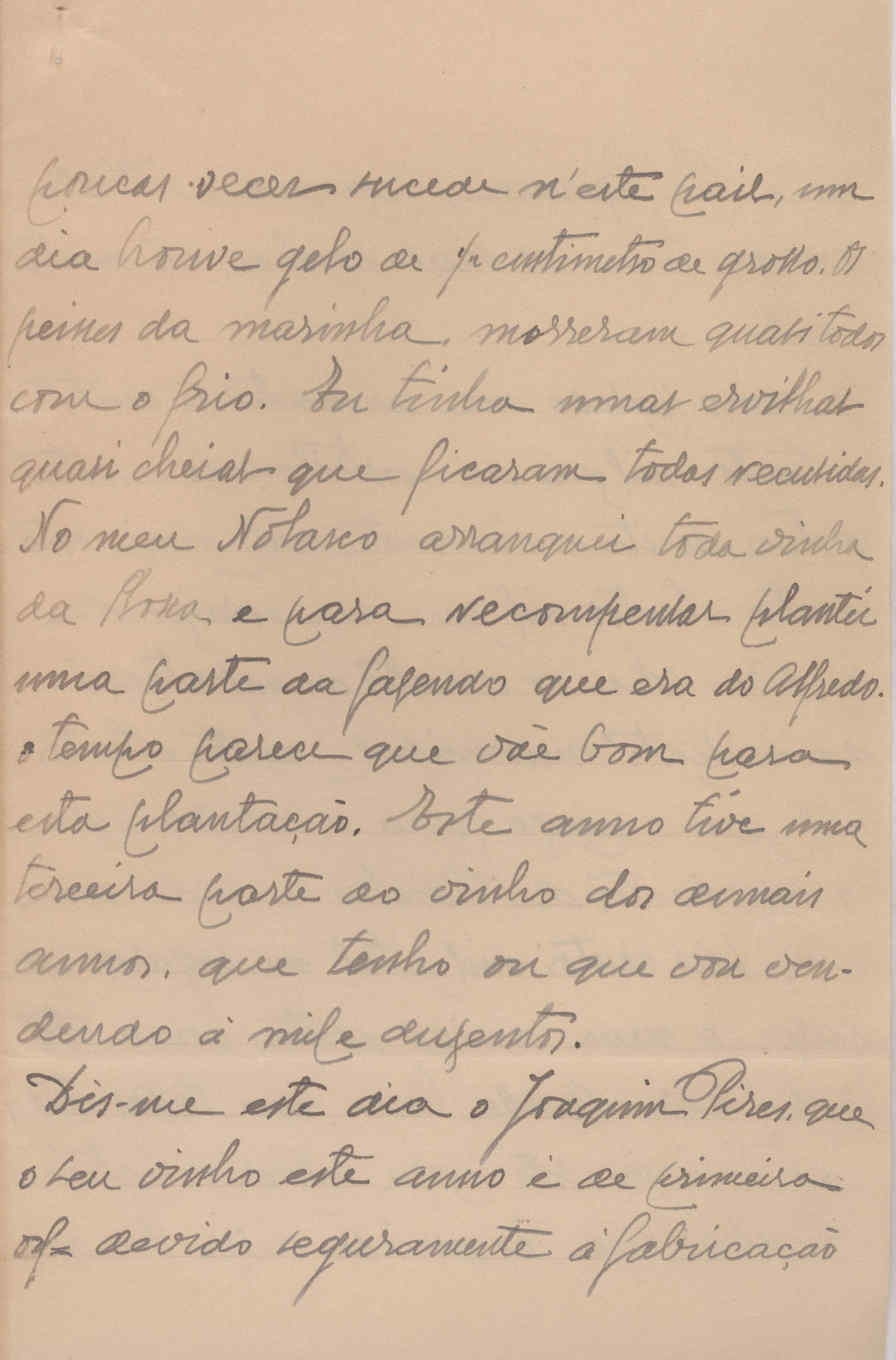 poucas veces sucede n'este paiz, um
dia houve gelo de centimetro de grosso. Os
peixes da marinha, morreram quasi todos
com o frio. Eu tinha umas ervilhas
quasi cheias que ficaram todas recusidas.
No meu Nolasco arranquei toda vinha
da Rossa e para recompensar plantei
uma parte da fazenda que era do Alfredo.
o tempo parece que váe bom para
esta plantação. Este anno tive uma
terceira parte do vinho dos demais
annos, que tenho ou que vou ven-
dendo á mil e duzentos.
Dis-me este dia o Joaquim Pires, que
o seu vinho este anno é de primeira
devido seguramente á fabricação